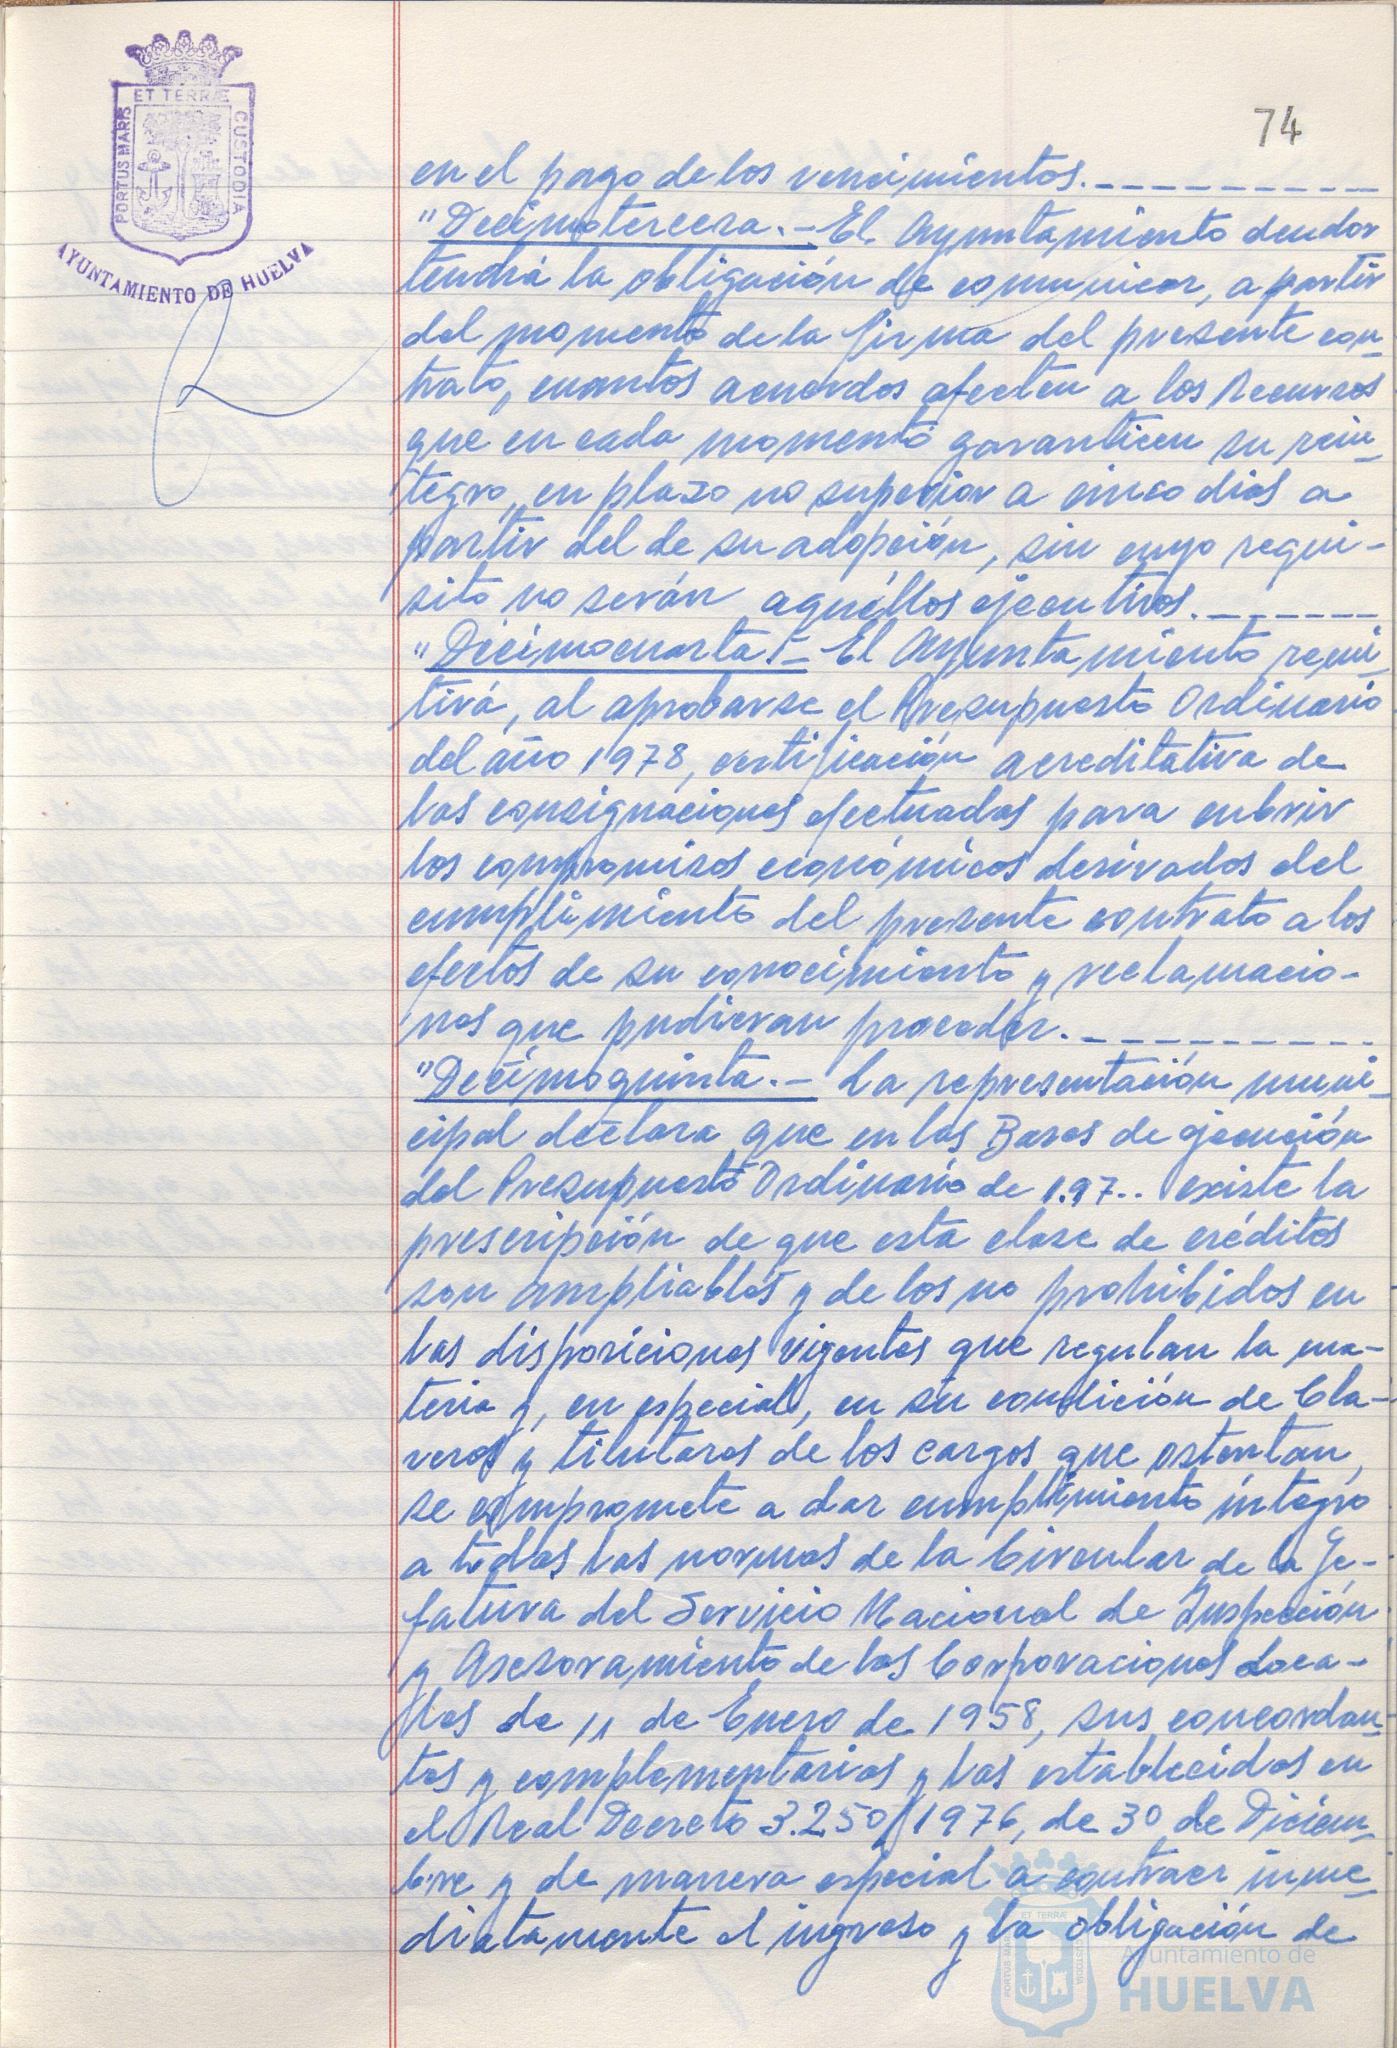 ET TERRÆ
PORTUS MARIS
CUSTODIA
AYUNTAMIENTO DE HUELVA
74
en el pago de los vencimientos.----------
"Decimotercera.- El Ayuntamiento deudor
tendrá la obligación de comunicar, a partir
del momento de la firma del presente con-
trato, cuantos acuerdos afecten a los Recursos
que en cada momento garanticen su rein-
tegro, en plazo no superior a cinco dias a
partir del de su adopción, sin cuyo requi-
sito no serán aquéllos ejecutivos.-------
"Decimocuarta.- El Ayuntamiento remi-
tirá, al aprobarse el Presupuesto Ordinario
del año 1978, certificación acreditativa de
las consignaciones efectuadas para cubrir
los compromisos económicos derivados del
cumplimiento del presente contrato a los
efectos de su conocimiento y reclamacio-
nes que pudieran proceder.----------
"Decimoquinta.- La representación muni-
cipal declara que en las Bases de ejecución
del Presupuesto Ordinario de 1.97.. existe la
prescripción de que esta clase de créditos
son ampliables y de los no prohibidos en
las disposiciones vigentes que regulan la ma-
teria y, en especial, en su condición de Cla-
veros y titulares de los cargos que ostentan,
se compromete a dar cumplimiento integro
a todas las normas de la Circular de la Je-
fatura del Servicio Nacional de Inspección
y Asesoramiento de las Corporaciones Loca-
les de 11 de Enero de 1958, sus concordan-
tes y complementarias y las establecidas en
el Real Decreto 3.250/1976, de 30 de Diciem-
bre y de manera especial a contraer inme-
diatamente el ingreso y la obligación de
ET TERRÆ
PORTUS MARIS
CUSTODIA
Ayuntamiento de
HUELVA